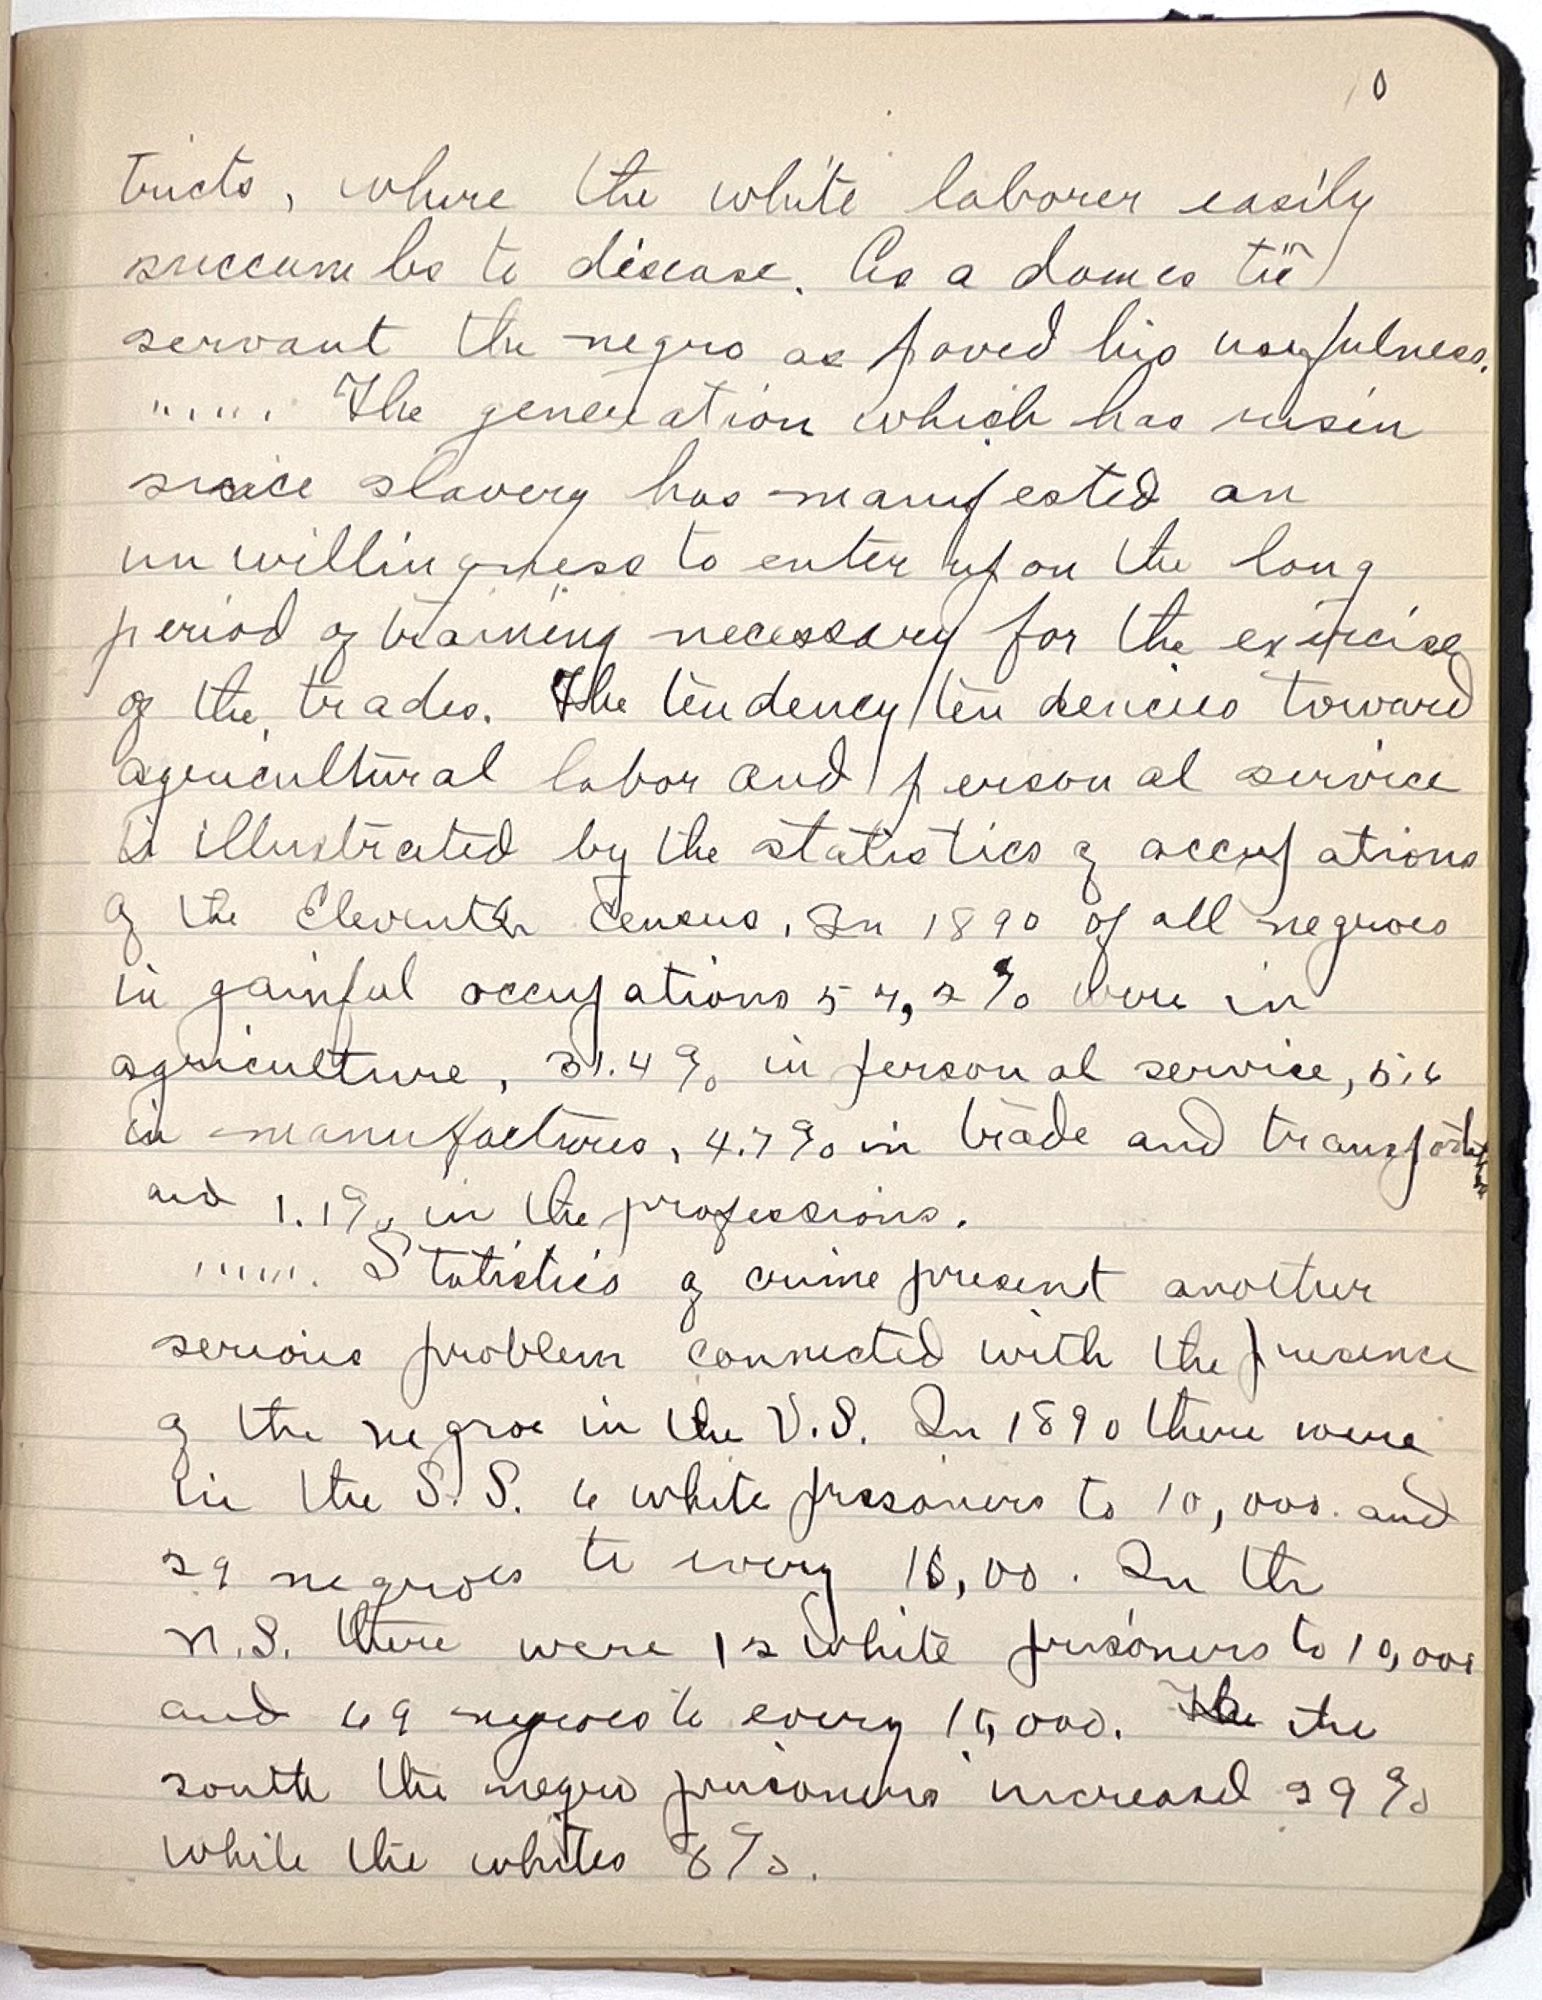 10
tricts, where the white laborer easily
succumbs to disease. As a domestic
servant the negro as poved his usefulness.
..... The generation which has risen
since slavery has manifested an
unwillingness to enter upon the long
period of training necessary for the exercise
of the trades. The tendency tendencies toward
agricultural labor and personal service
is illustrated by the statistics of occupations
of the Eleventh Census. In 1890 of all negroes
in gainful occupations 57,2% were in
agriculture, 31.4% in personal service, 5.6
in manufactures, 4.7% in trade and
and 1.1% in the professions.
...... Statistics of crime present another
serious problem connected with the presence
of the negroe in the U.S. In 1890 there were
in the S.S. 6 white prisoners to 10,000. and
29 negroes to every 10,00. In the
N.S. there were 12 white prisoners to 10,000
and 69 negroes to every 10,000. The the
south the negro prisoners increased 29%
while the whites 8%.